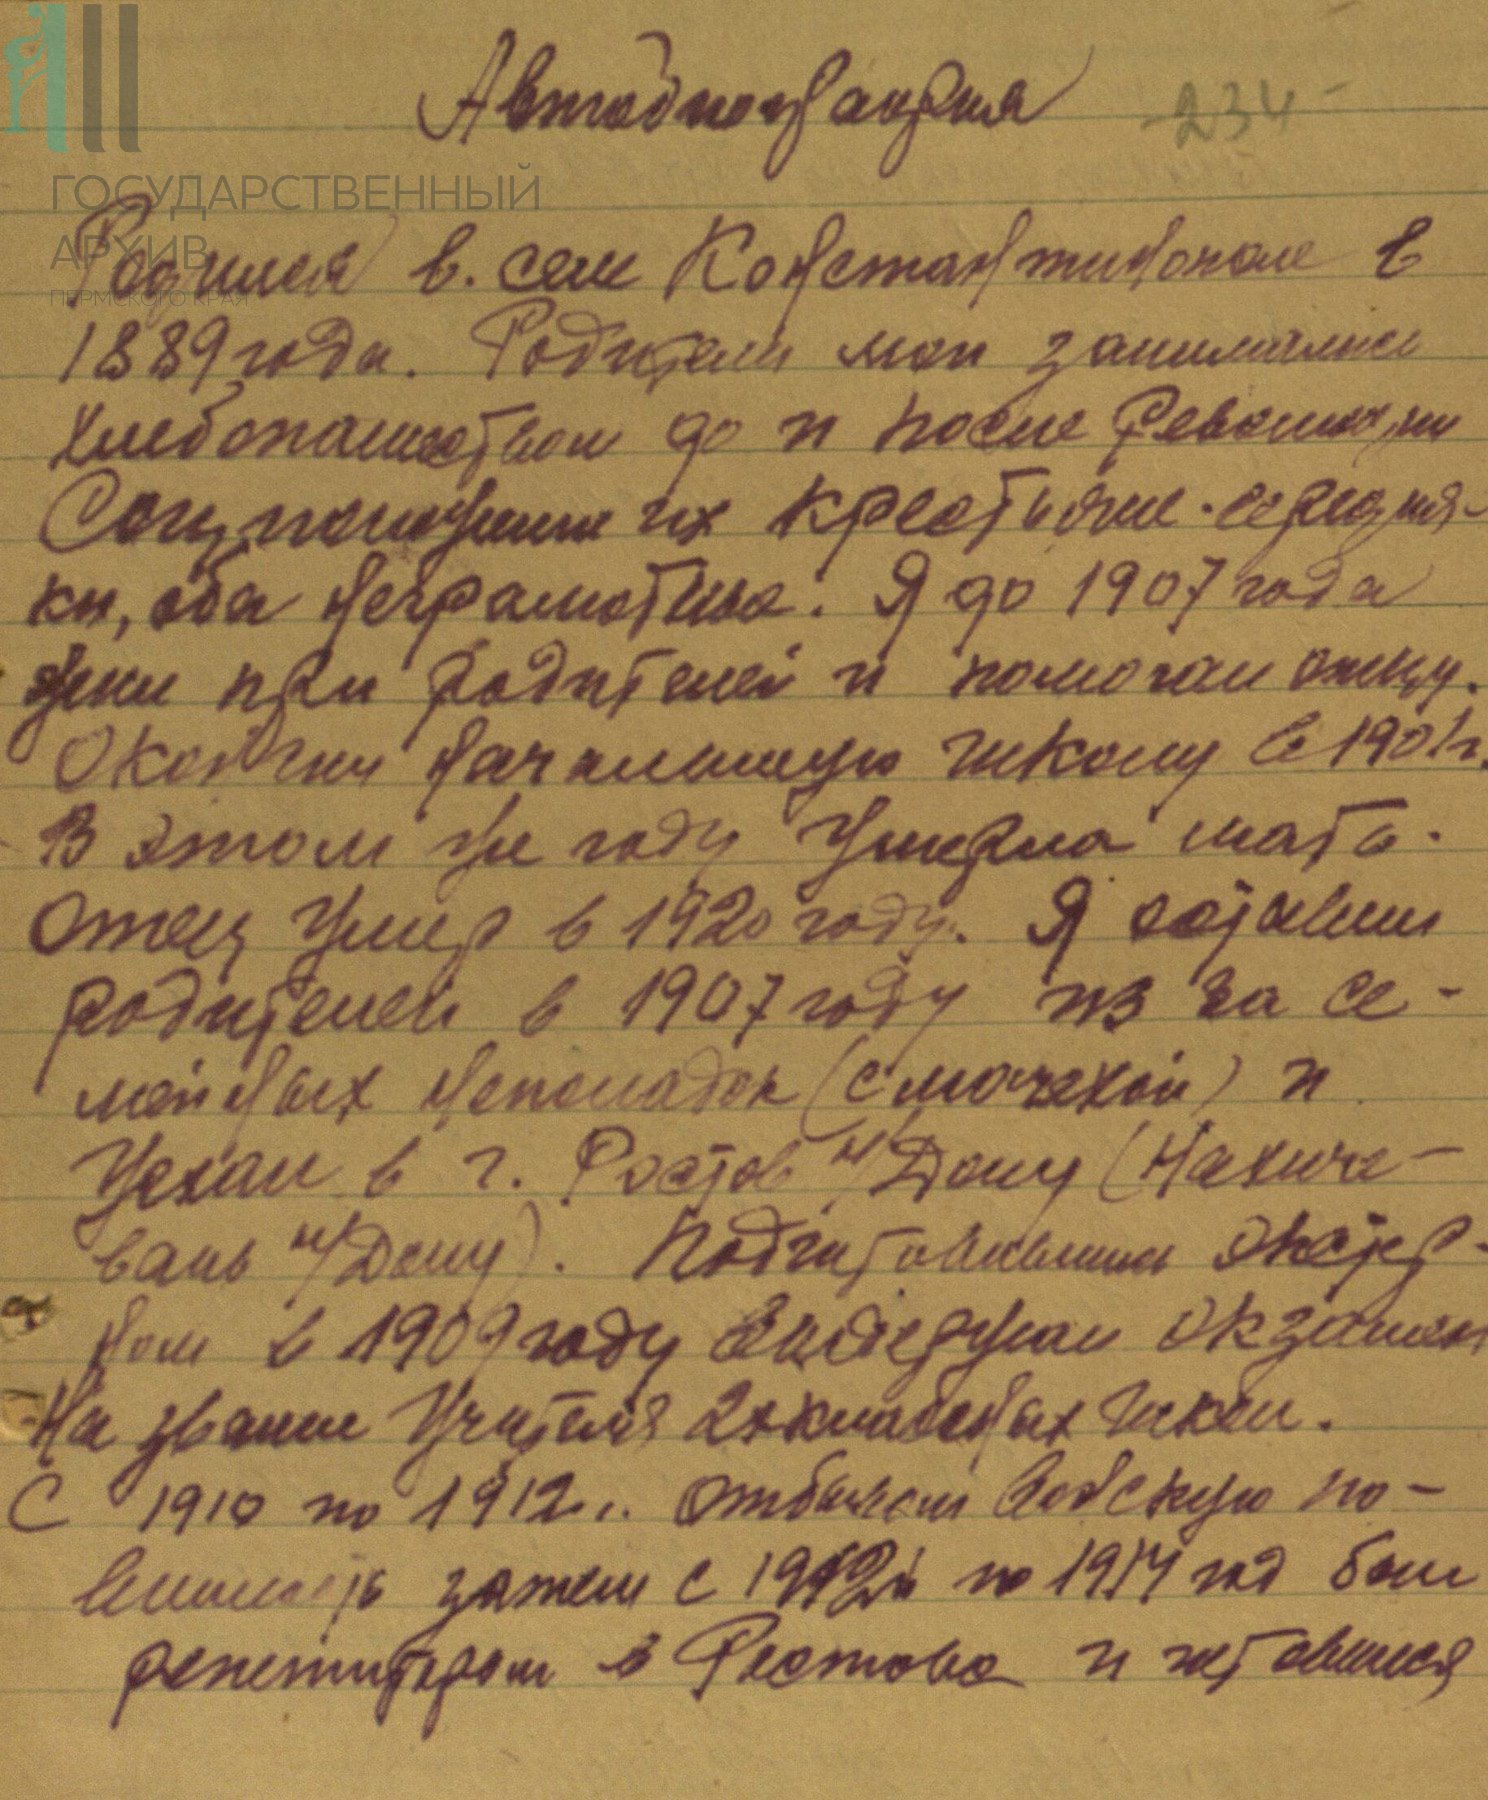 Автобиография
234
ГОСУДАРСТВЕННЫЙ
АРХИВ
ПЕРМСКОГО КРАЯ
Родился в. селе Константинополе в
1889 года. Родители мои занимались
хлебопашеством до и после Революции
Соцположение их крестьяне-середня-
ки, оба неграмотные. Я до 1907 года
жил при родителей и помогал отцу.
Окончил начальную школу в 1901 г.
В этом же году умерла мать.
Отец умер в 1920 году. Я оставил
родителей в 1907 году из за се-
мейных неполадок (с мачехой) и
уехал в г. Ростов н/Дону (Нахиче-
вань н/Дону). Подготовившись экстер-
ном в 1909 году выдержал экзамен
на звание учителя 2х классных школ.
С 1910 по 1912 г. отбывал воинскую по-
винность затем с 1912 г. по 1914 год был
репетитором в Ростове и готовился